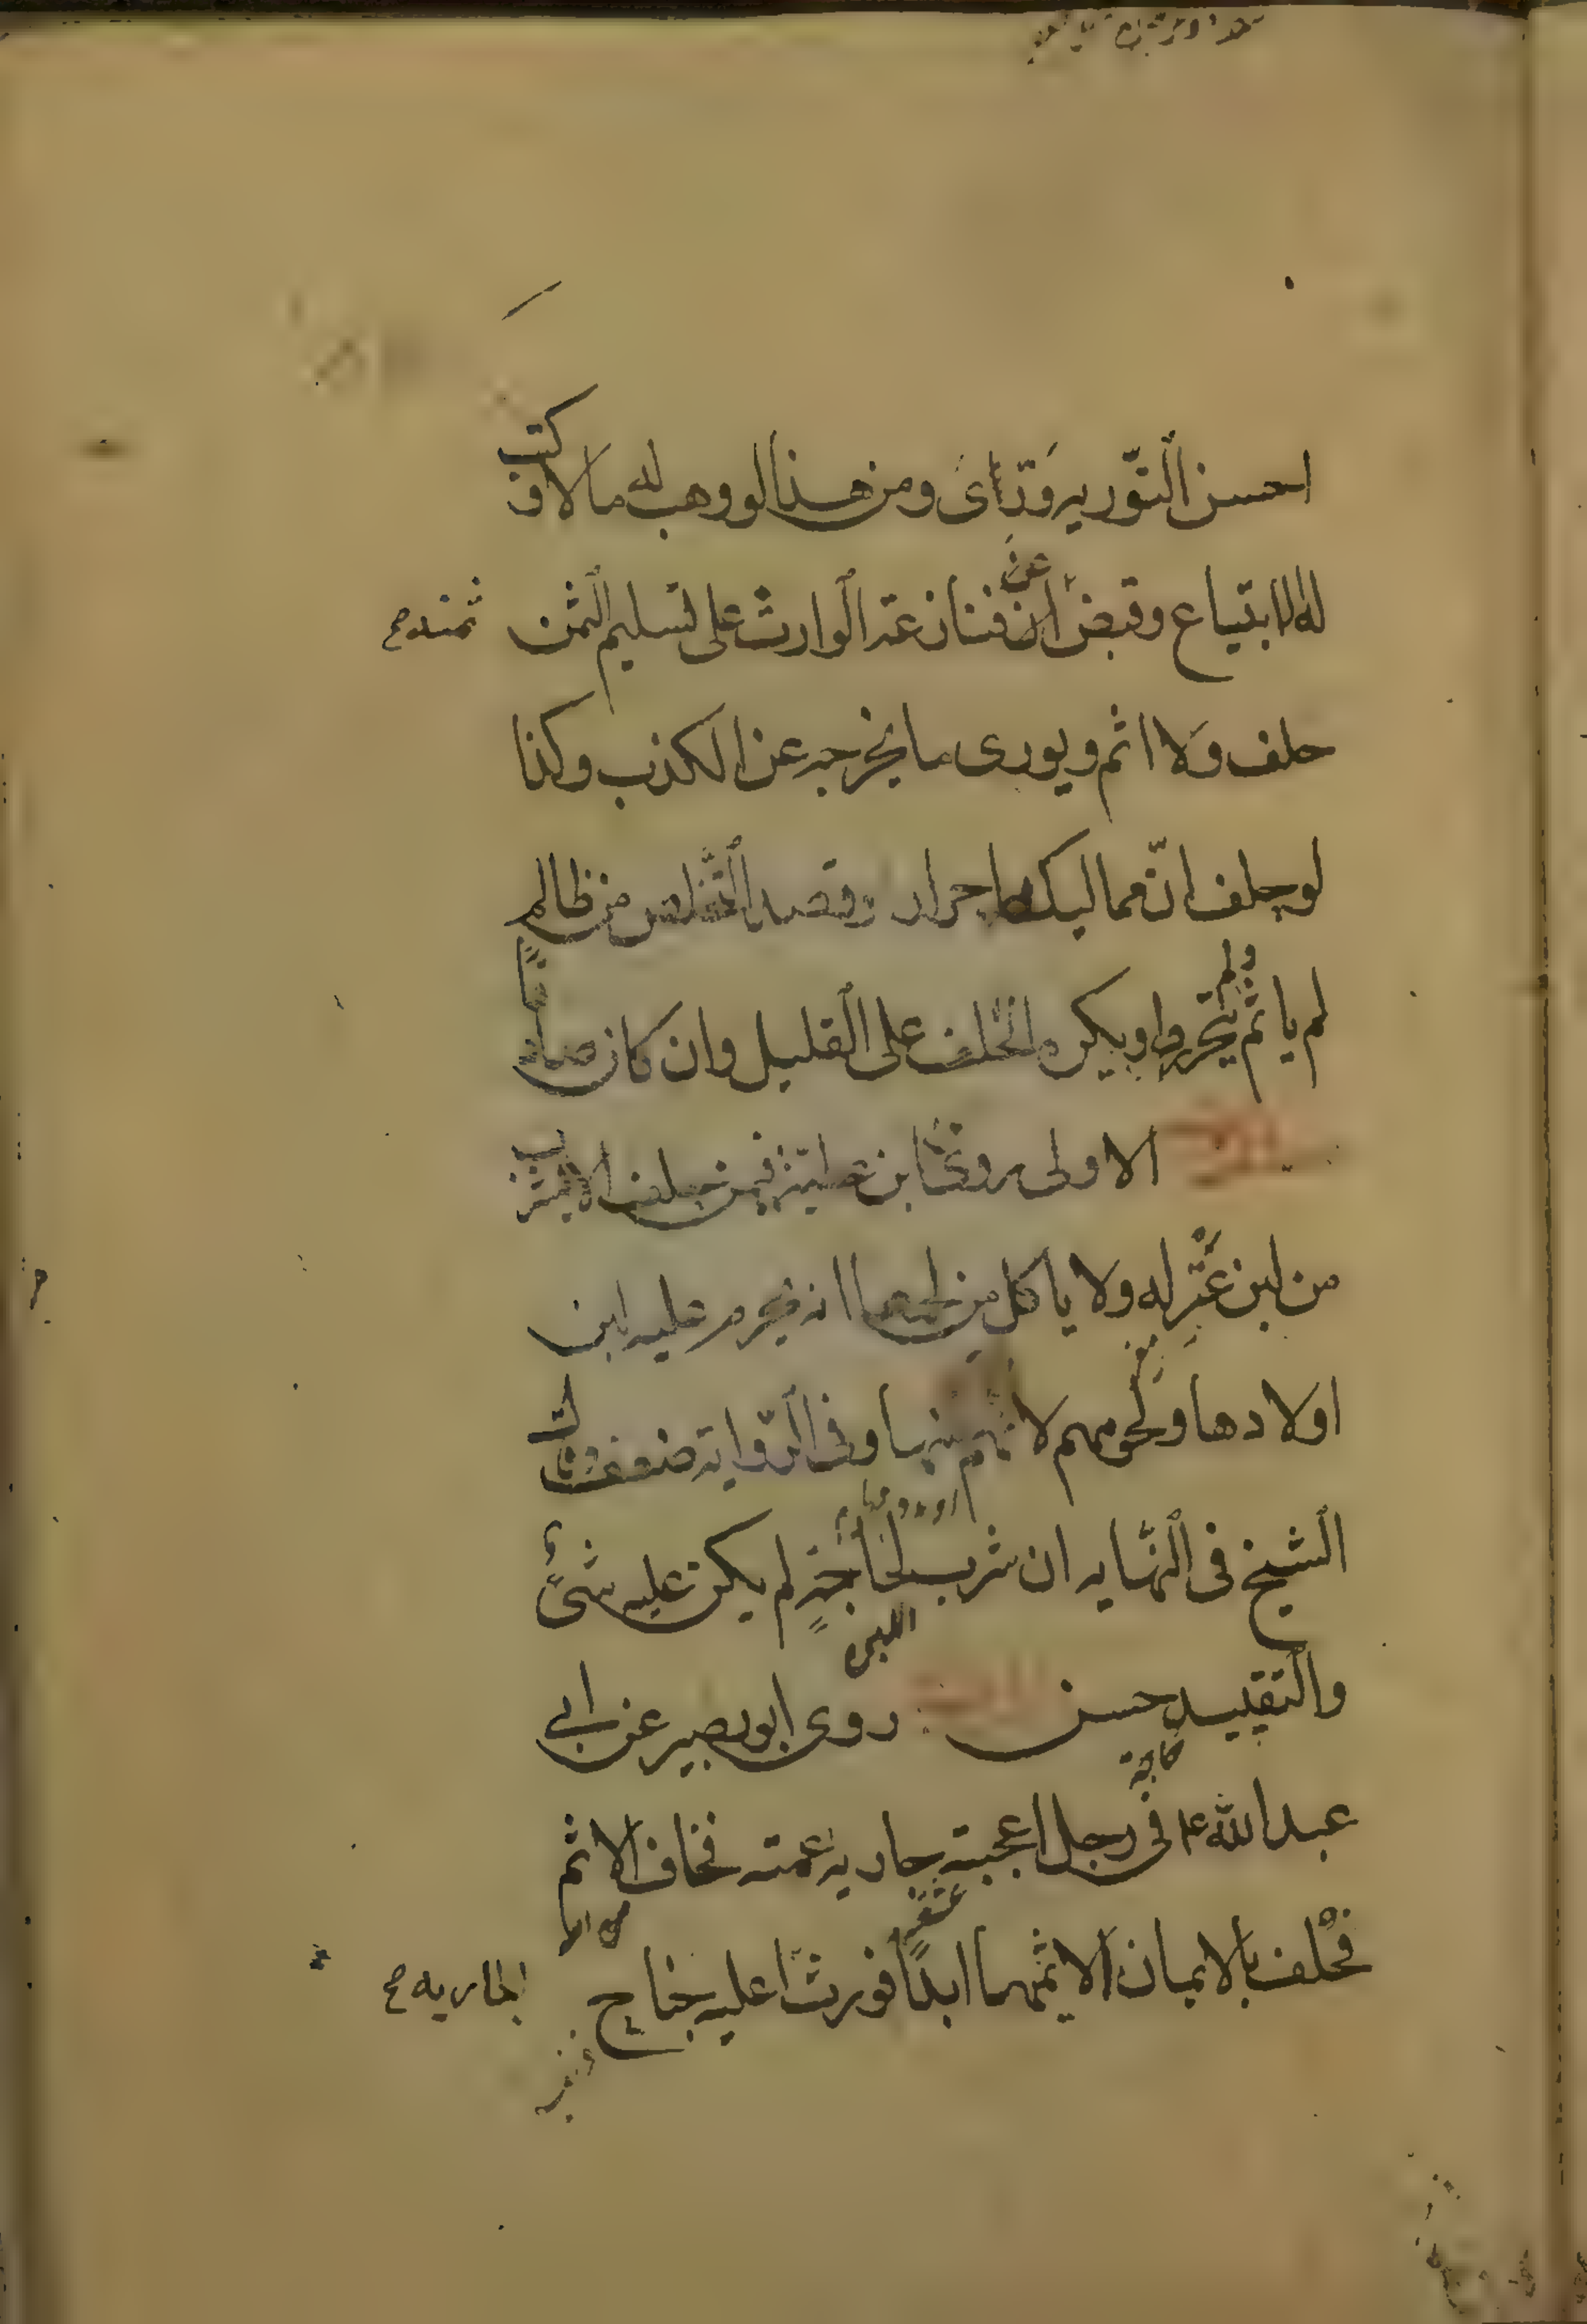 احسن التوریه وَرّیٰ ومن هذا لو وهب له مالا و كتب
له الابتیاع وقبض الثمن فنازعه الوارث على تسلیم الثمن ثمنه صح
حلف ولا اثم ویورى ما یخرجه عن الكذب وكذا
لو حلف انّ ممالیکه احرار وقصد التخلص من ظالم
لم یاثم ولم یتحرروا ویكره الحلف على القلیل وان كان صادقا
الاولى روى ابن عطیّه فیمن حلف الا یشرب
من لبن عنز له ولا یاكل من لحمها انه یحرم علیه لبن
اولادها ولحومهم لانهم منها وفى الرّوایه ضعف وقال
الشیخ فى النّهایه ان شرب لحاجةٍ لم یكن علیه شیءٌ
والتقیید حسن روى ابو بصیر عن ابی
عبد الله ع فى رجل اعجبته جاریه عمته فخاف الاثم
فحلف بالایمان الا یمسها ابدًا فورث علیه جناح الجاریه صح